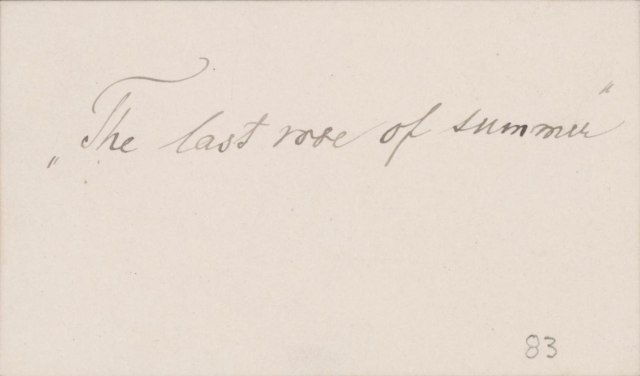 „The last rose of summer”
83